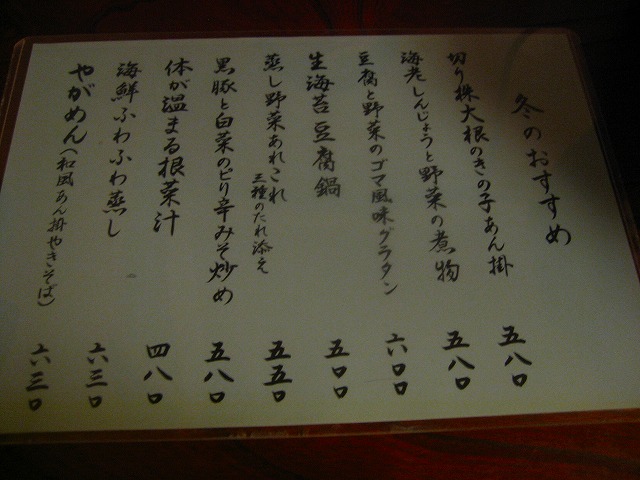 冬のおすすめ
切り株大根のきの子あん掛 五八〇
海老しんじょうと野菜の煮物 五八〇
豆腐と野菜のゴマ風味グラタン 六〇〇
生海苔豆腐鍋 五〇〇
蒸し野菜あれこれ 三種のたれ添え 五五〇
黒豚と白菜のピリ辛みそ炒め 五八〇
体が温まる根菜汁 四八〇
海鮮ふわふわ蒸し 六三〇
やがめん(和風あん掛やきそば) 六三〇